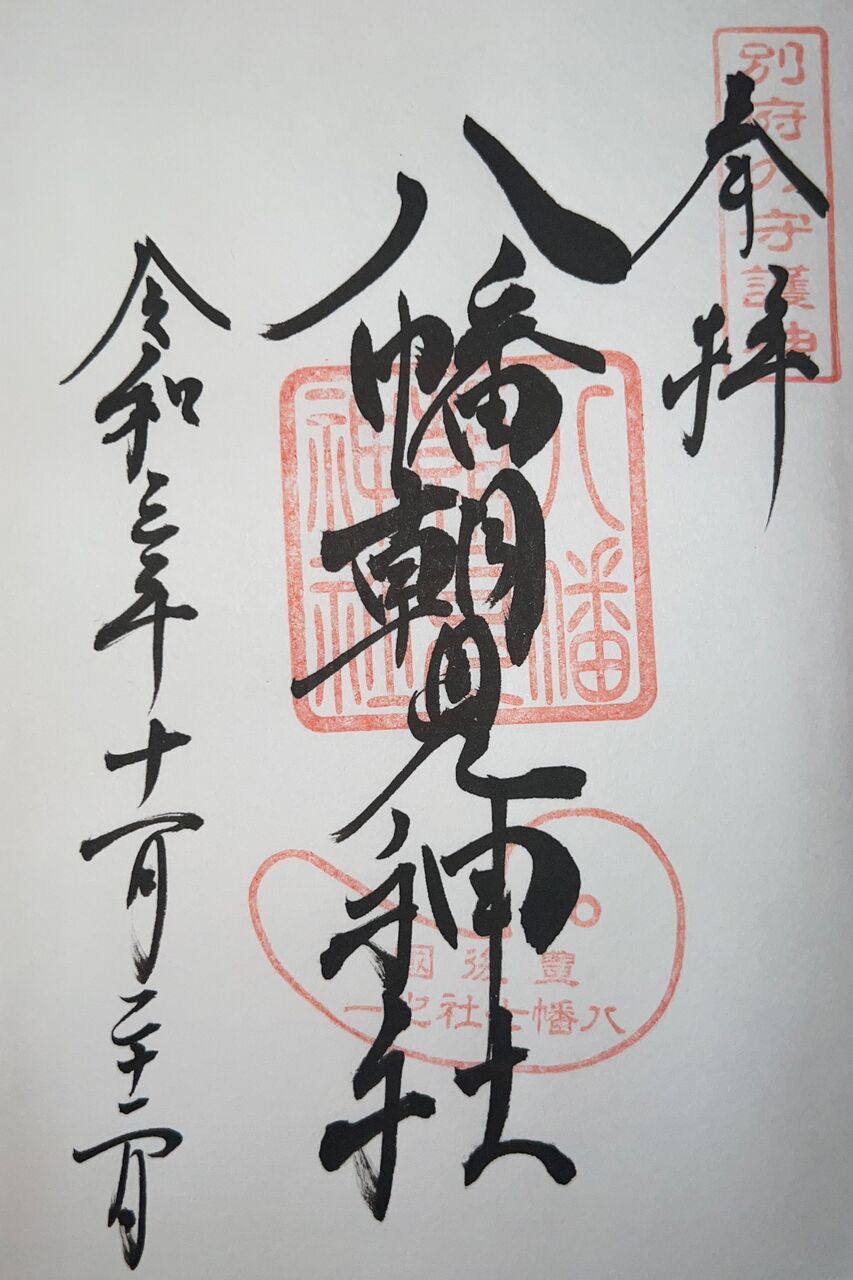 別府の守護神
奉拝
八幡朝見神社
八幡朝見神社
豐後國
八幡七社之一
令和三年十一月二十二日